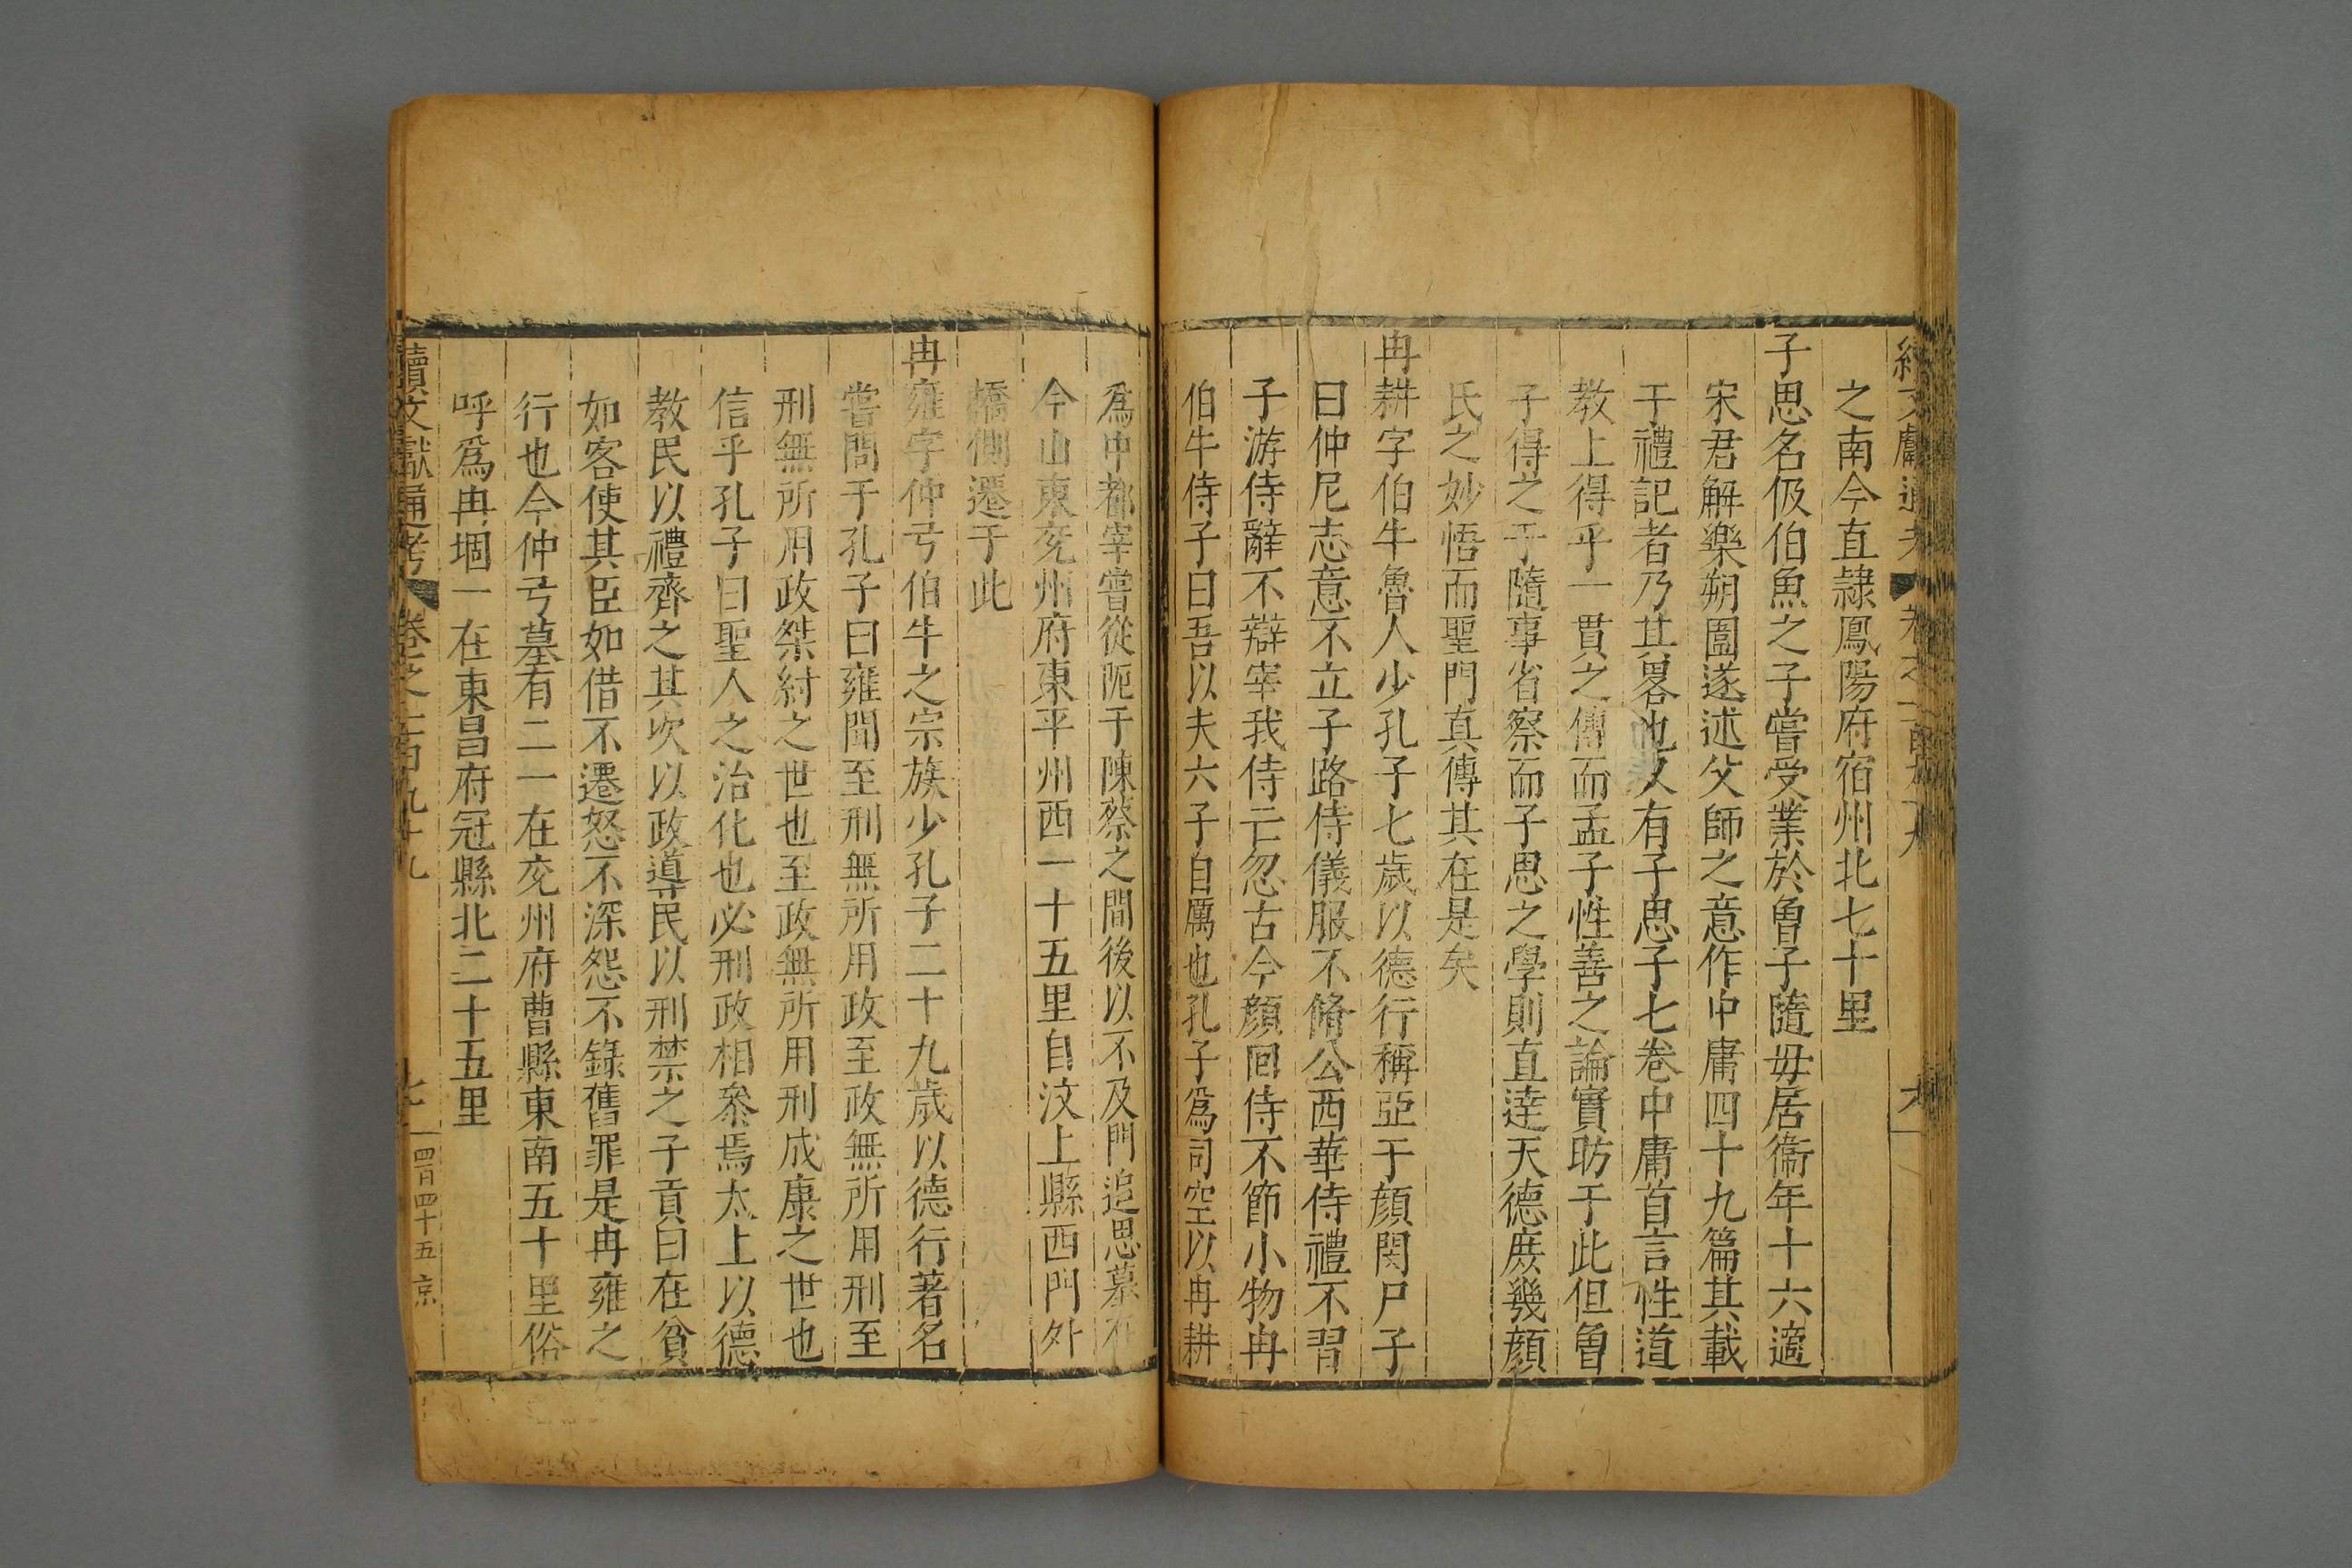 之南今直隸鳳陽府宿州北七十里
子思名伋伯魚之子嘗受業於曾子隨毋居衞年十六適
宋君解樂朔圍遂述父師之意作中庸四十九篇其載
于禮記者乃其畧也又有子思子七卷中庸首言性道
教上得乎一貫之傳而孟子性善之論實昉于此但曾
子得之于隨事省察而子思之學則直逹天德庻幾顔
氏之妙悟而聖門真傳其在是矣
冉耕字伯牛魯人少孔子七歲以德行稱亞于顔閔尸子
曰仲尼志意不立子路侍儀服不脩公西華侍禮不習
子游侍辭不辯宰我侍亡忽古今顔囘侍不節小物冉
伯牛侍子曰吾以夫六子自厲也孔子爲司空以冉耕
爲中都宰嘗從阨于陳蔡之間後以不及門追思墓在
今山東兖州府東平州西一十五里自汶上縣西門外
橋側遷于此
冉雍字仲弓伯牛之宗族少孔子二十九歲以德行著名
嘗問于孔子曰雍聞至刑無所用政至政無所用刑至
刑無所用政桀紂之世也至政無所用刑成康之世也
信乎孔子曰聖人之治化也必刑政相叅焉太上以德
教民以禮齊之其次以政導民以刑禁之子貢曰在貧
如客使其臣如借不遷怒不深怨不錄舊罪是冉雍之
行也今仲弓墓有二一在兖州府曹縣東南五十里俗
呼爲冉堌一在東昌府冠縣北二十五里
續文獻通考 卷之一百九十九 七 四百四十五 京